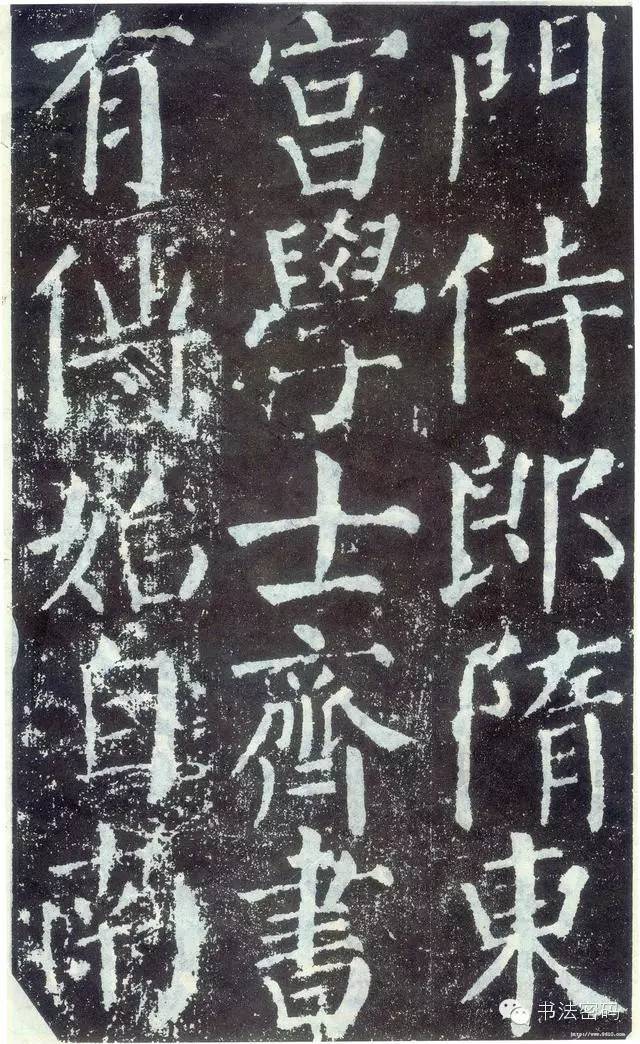 門侍郎隋東
宮學士齊書
有傳始自南
书法密码
http://www.9610.com